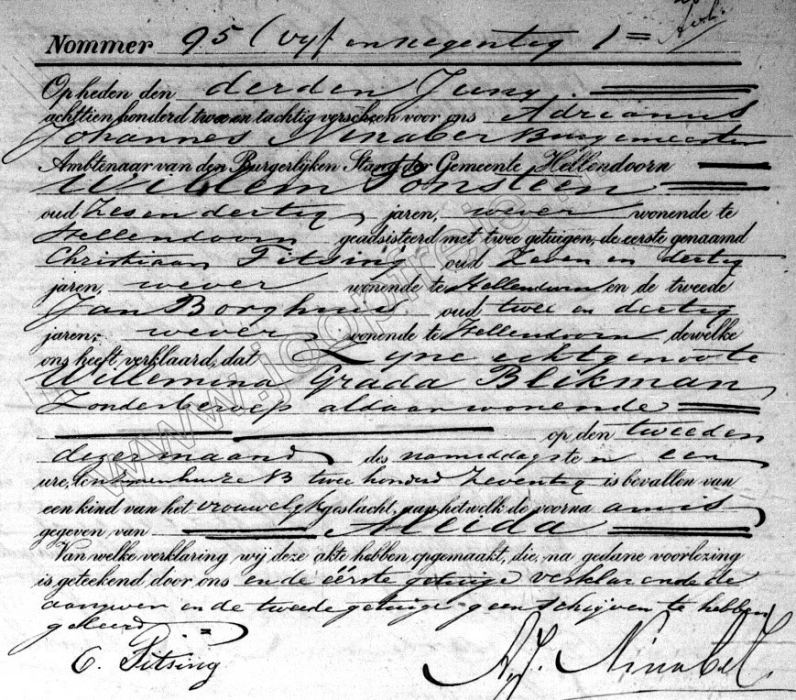 Nommer 95 (vyf en negentig) =
Op heden den derden Juny
achttien honderd twee en tachtig verscheen voor ons Adrianus
Johannes Ninaber Burgemeester
Ambtenaar van den Burgerlijken Stand der Gemeente Hellendoorn
Willem Fonsteen
oud Zes en dertig jaren, wever wonende te
Hellendoorn geadsisteerd met twee getuigen, de eerste genaamd
Christiaan Fitsing oud Zeven en dertig
jaren, wever wonende te Hellendoorn en de tweede
Jan Borghuis oud twee en dertig
jaren, wever wonende te Hellendoorn dewelke
ons heeft verklaard, dat Zyne echtgenoote
Willemina Grada Blikman
Zonder beroep aldaar wonende
op den tweeden
dezer maand des namiddags te een
ure, ten zynen huize B twee honderd Zeventig is bevallen van
een kind van het vrouwelyk geslacht, aan hetwelk de voorna amis
gegeven, van Aleida
Van welke verklaring wij deze akte hebben opgemaakt, die, na gedane voorlezing
is geteekend, door ons en de eerste getuige verklarende de
aangever en de tweede getuige geen schryven te hebben
geleerd
C. Fitsing A.J. Ninaber
www.jcopfreie